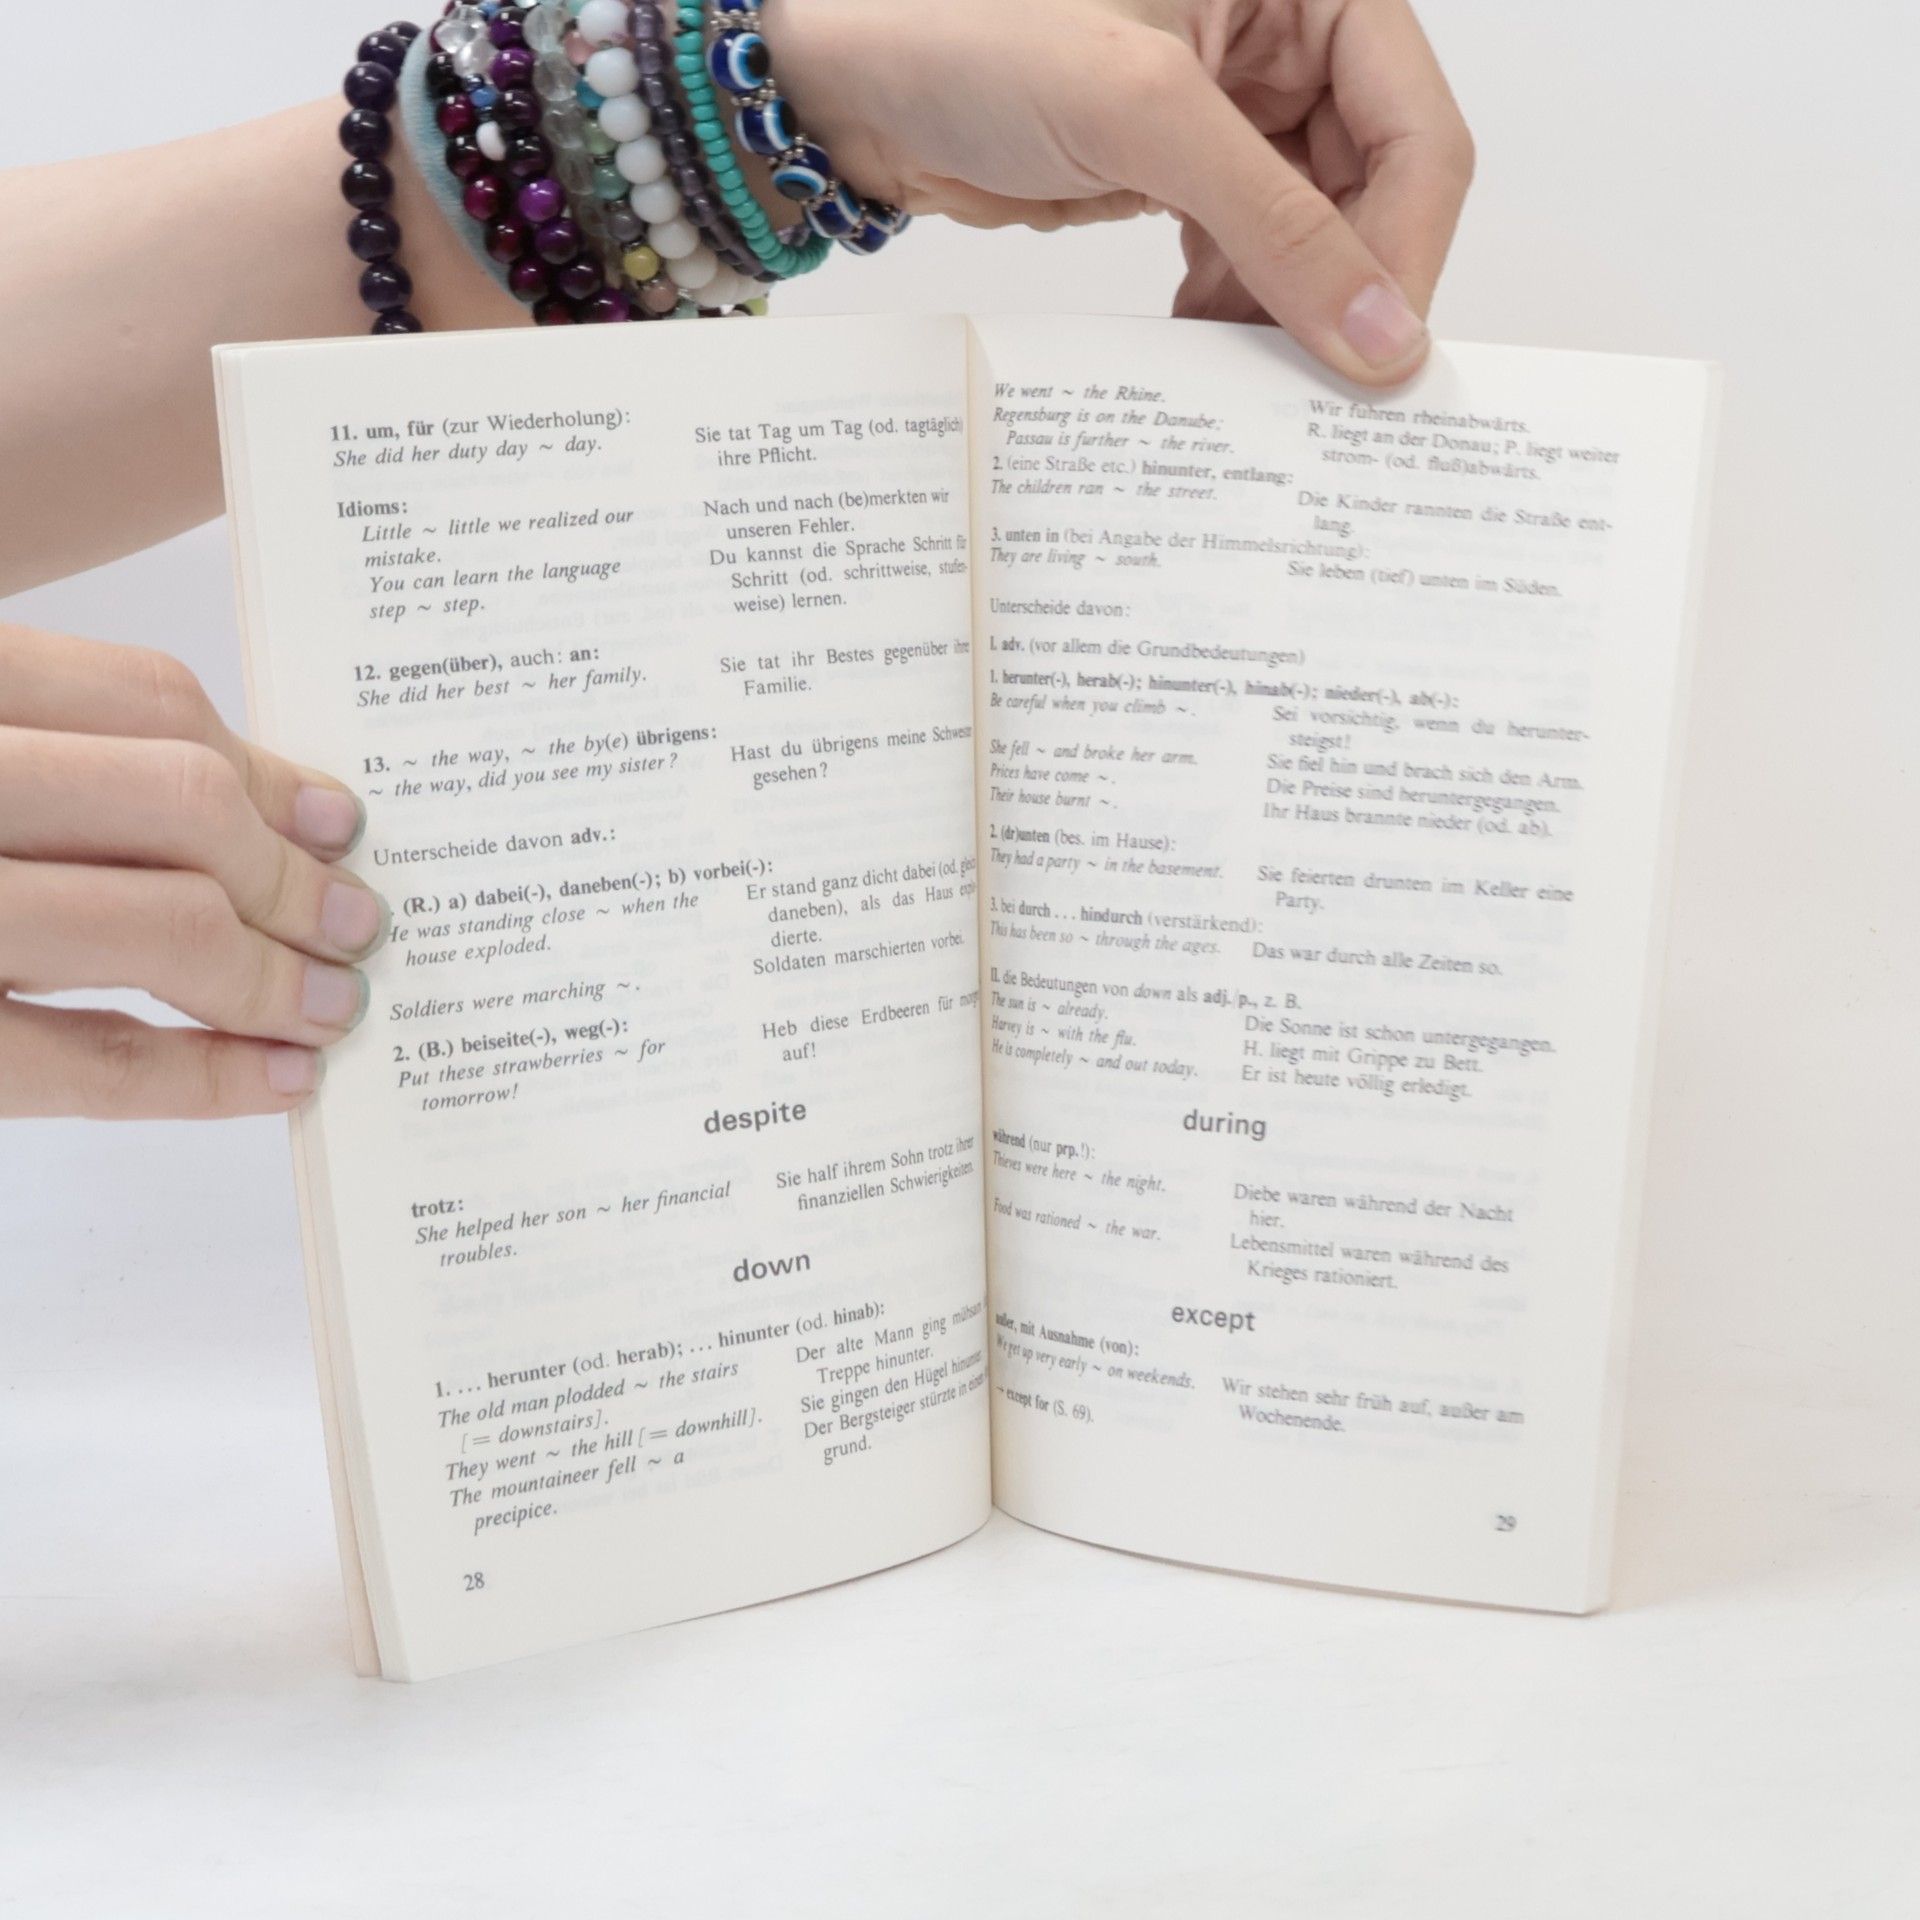 11. um, für (zur Wiederholung):
She did her duty day ~ day.
Sie tat Tag um Tag (od. tagtäglich)
ihre Pflicht.
Idioms:
Little ~ little we realized our
mistake.
Nach und nach (be)merkten wir
unseren Fehler.
You can learn the language
step ~ step.
Du kannst die Sprache Schritt für
Schritt (od. schrittweise, stufen-
weise) lernen.
12. gegen(über), auch: an:
She did her best ~ her family.
Sie tat ihr Bestes gegenüber ihre
Familie.
13. ~ the way, ~ the by(e) übrigens:
~ the way, did you see my sister?
Hast du übrigens meine Schwester
gesehen?
Unterscheide davon adv.:
. (R.) a) dabei(-), daneben(-); b) vorbei(-):
He was standing close ~ when the
house exploded.
Er stand ganz dicht dabei (od. gleich
daneben), als das Haus explo-
dierte.
Soldiers were marching ~.
Soldaten marschierten vorbei.
2. (B.) beiseite(-), weg(-):
Put these strawberries ~ for
tomorrow!
Heb diese Erdbeeren für morgen
auf!
despite
trotz:
She helped her son ~ her financial
troubles.
Sie half ihrem Sohn trotz ihrer
finanziellen Schwierigkeiten.
down
1. ... herunter (od. herab); ... hinunter (od. hinab):
The old man plodded ~ the stairs
[= downstairs].
Der alte Mann ging mühsam
Treppe hinunter.
They went ~ the hill [= downhill].
Sie gingen den Hügel hinunter.
The mountaineer fell ~ a
precipice.
Der Bergsteiger stürzte in einen
grund.
28
We went ~ the Rhine.
Wir fuhren rheinabwärts.
Regensburg is on the Danube;
Passau is further ~ the river.
R. liegt an der Donau; P. liegt weiter
strom- (od. fluß)abwärts.
2. (eine Straße etc.) hinunter, entlang:
The children ran ~ the street.
Die Kinder rannten die Straße ent-
lang.
3. unten in (bei Angabe der Himmelsrichtung):
They are living ~ south.
Sie leben (tief) unten im Süden.
Unterscheide davon:
I. adv. (vor allem die Grundbedeutungen)
1. herunter(-), herab(-); hinunter(-), hinab(-); nieder(-), ab(-):
Be careful when you climb ~.
Sei vorsichtig, wenn du herunter-
steigst!
She fell ~ and broke her arm.
Sie fiel hin und brach sich den Arm.
Prices have come ~.
Die Preise sind heruntergegangen.
Their house burnt ~.
Ihr Haus brannte nieder (od. ab).
2. (dr)unten (bes. im Hause):
They had a party ~ in the basement.
Sie feierten drunten im Keller eine
Party.
3. bei durch ... hindurch (verstärkend):
This has been so ~ through the ages.
Das war durch alle Zeiten so.
II. die Bedeutungen von down als adj./p., z. B.
The sun is ~ already.
Die Sonne ist schon untergegangen.
Harvey is ~ with the flu.
H. liegt mit Grippe zu Bett.
He is completely ~ and out today.
Er ist heute völlig erledigt.
during
während (nur prp.!):
Thieves were here ~ the night.
Diebe waren während der Nacht
hier.
Food was rationed ~ the war.
Lebensmittel waren während des
Krieges rationiert.
except
außer, mit Ausnahme (von):
We get up very early ~ on weekends.
Wir stehen sehr früh auf, außer am
Wochenende.
→ except for (S. 69).
29